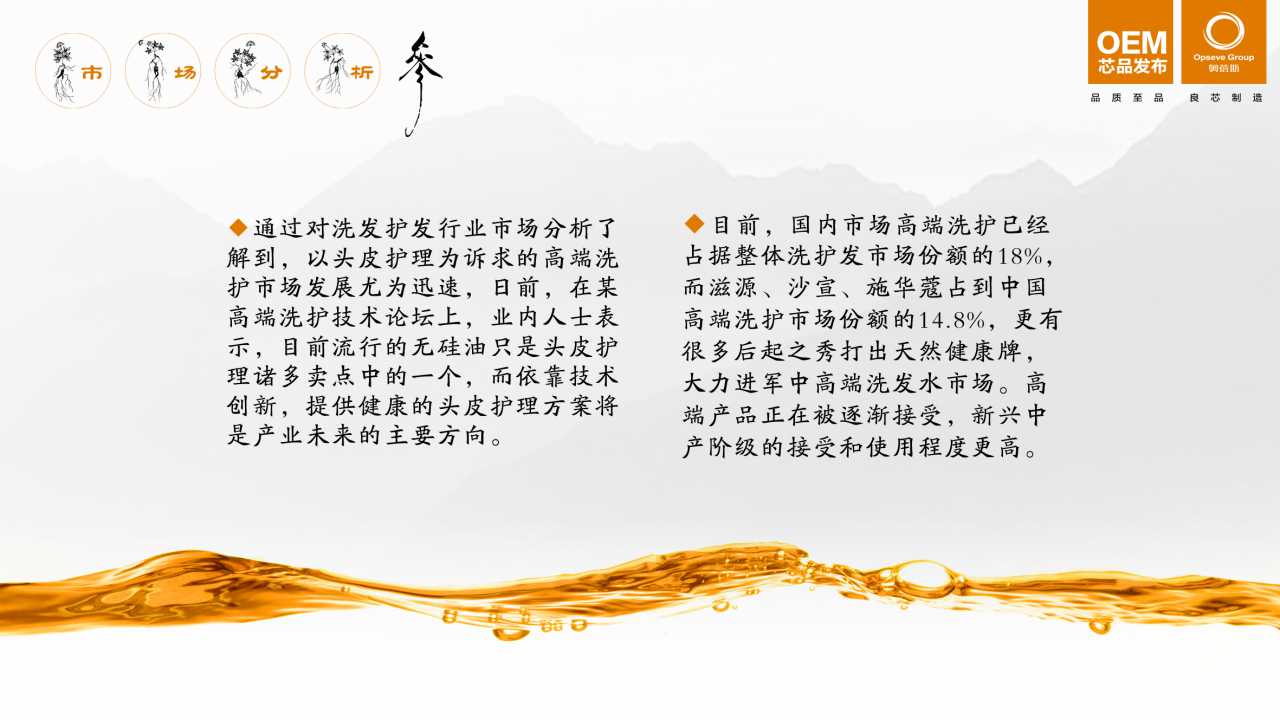 市场分析
参
OEM
芯品发布
Opseve Group
品质至品 良芯制造
通过对洗发护发行业市场分析了
解到，以头皮护理为诉求的高端洗
护市场发展尤为迅速，日前，在某
高端洗护技术论坛上，业内人士表
示，目前流行的无硅油只是头皮护
理诸多卖点中的一个，而依靠技术
创新，提供健康的头皮护理方案将
是产业未来的主要方向。
目前，国内市场高端洗护已经
占据整体洗护发市场份额的18%，
而滋源、沙宣、施华蔻占到中国
高端洗护市场份额的14.8%，更有
很多后起之秀打出天然健康牌，
大力进军中高端洗发水市场。高
端产品正在被逐渐接受，新兴中
产阶级的接受和使用程度更高。